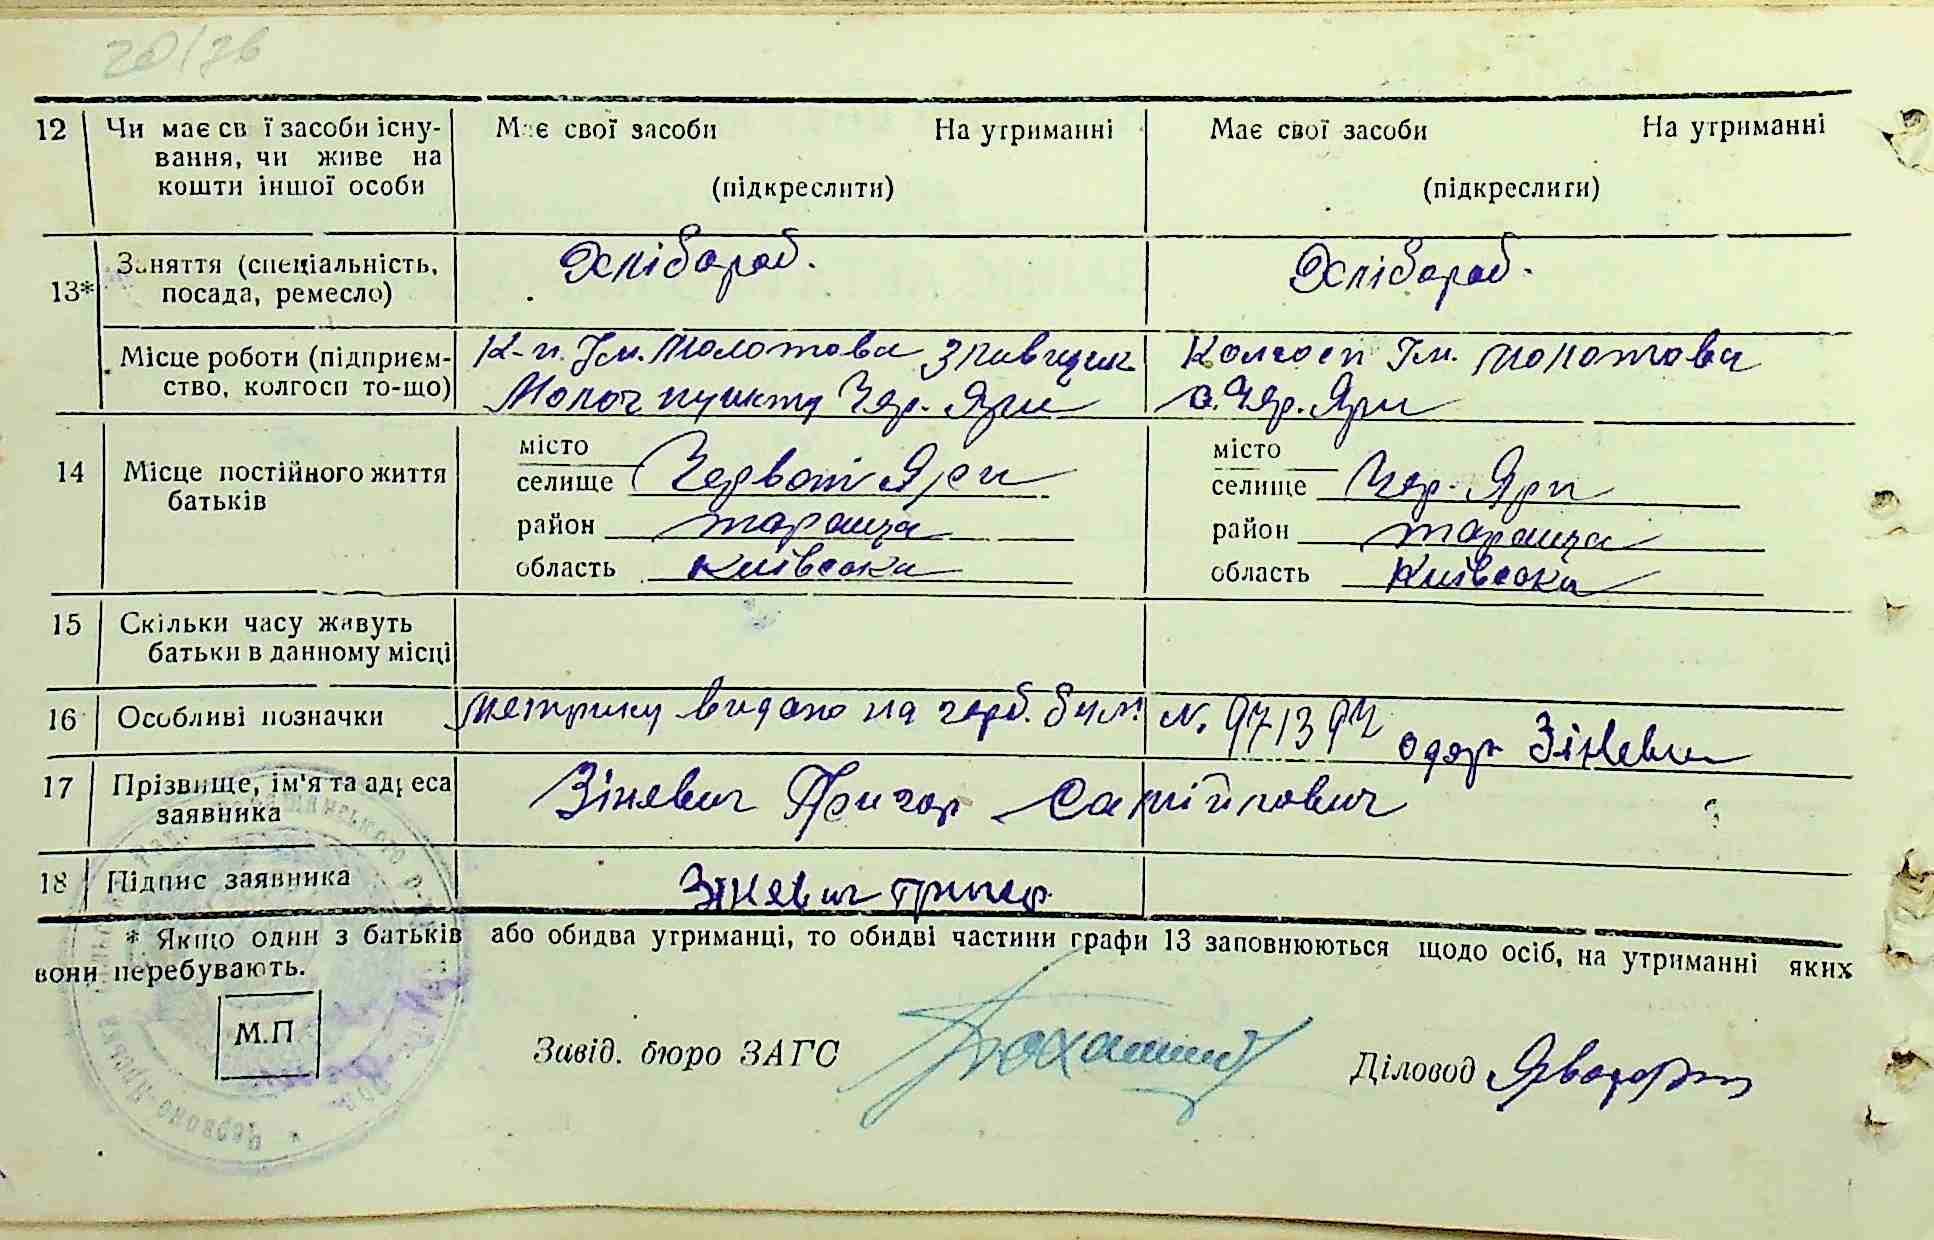 20/36
12 Чи має св ї засоби існу- Має свої засоби На утриманні Має свої засоби На утриманні
вання, чи живе на
кошти іншої особи (підкреслити) (підкреслити)
13* Заняття (спеціальність, Хлібороб. Хлібороб.
посада, ремесло)
Місце роботи (підприєм- К-п. Ім. Молотова Колгосп Ім. Молотова
ство, колгосп то-що) Молоч пункту Чер. Яри с. Чер. Яри
14 Місце постійного життя батьків
місто
селище Червоні Яри
район Тараща
область Київська
місто
селище Чер. Яри
район Тараща
область Київська
15 Скільки часу живуть
батьки в данному місці
16 Особливі позначки Метрику видано на герб. бум. N. одер Зіневич
17 Прізвище, ім'я та адреса Зіневич Григор
заявника
18 Підпис заявника Зіневич Григор
* Якщо один з батьків або обидва утриманці, то обидві частини графи 13 заповнюються щодо осіб, на утриманні яких
вони перебувають.
М.П
Завід. бюро ЗАГС
Діловод
Червоно-Ярська